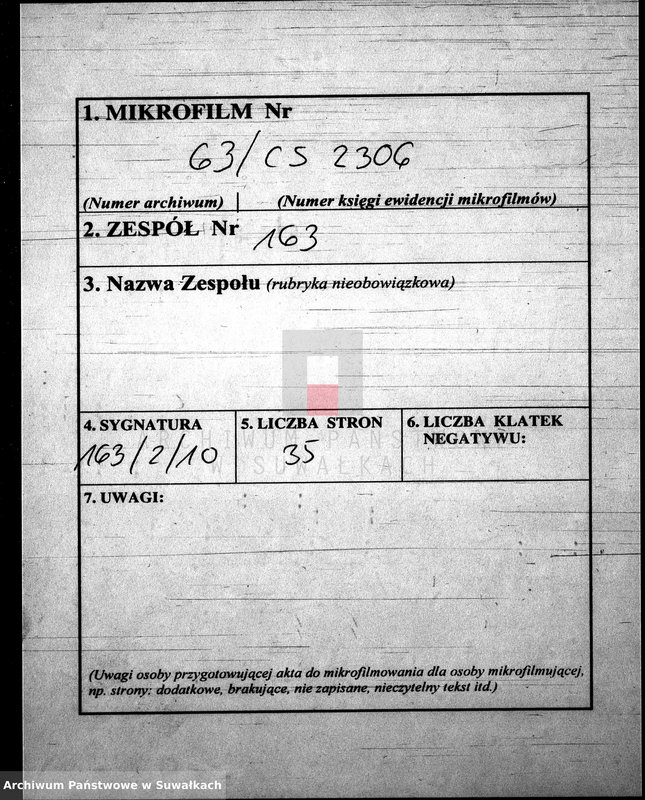 1. MIKROFILM Nr
63/CS 2306
(Numer archiwum) (Numer księgi ewidencji mikrofilmów)
2. ZESPÓŁ Nr 163
3. Nazwa Zespołu (rubryka nieobowiązkowa)
4. SYGNATURA
163/2/10
5. LICZBA STRON
35
6. LICZBA KLATEK
NEGATYWU:
ARCHIWUM PAŃSTWOWE
W SUWAŁKACH
7. UWAGI:
(Uwagi osoby przygotowującej akta do mikrofilmowania dla osoby mikrofilmującej,
np. strony: dodatkowe, brakujące, nie zapisane, nieczytelny tekst itd.)
Archiwum Państwowe w Suwałkach